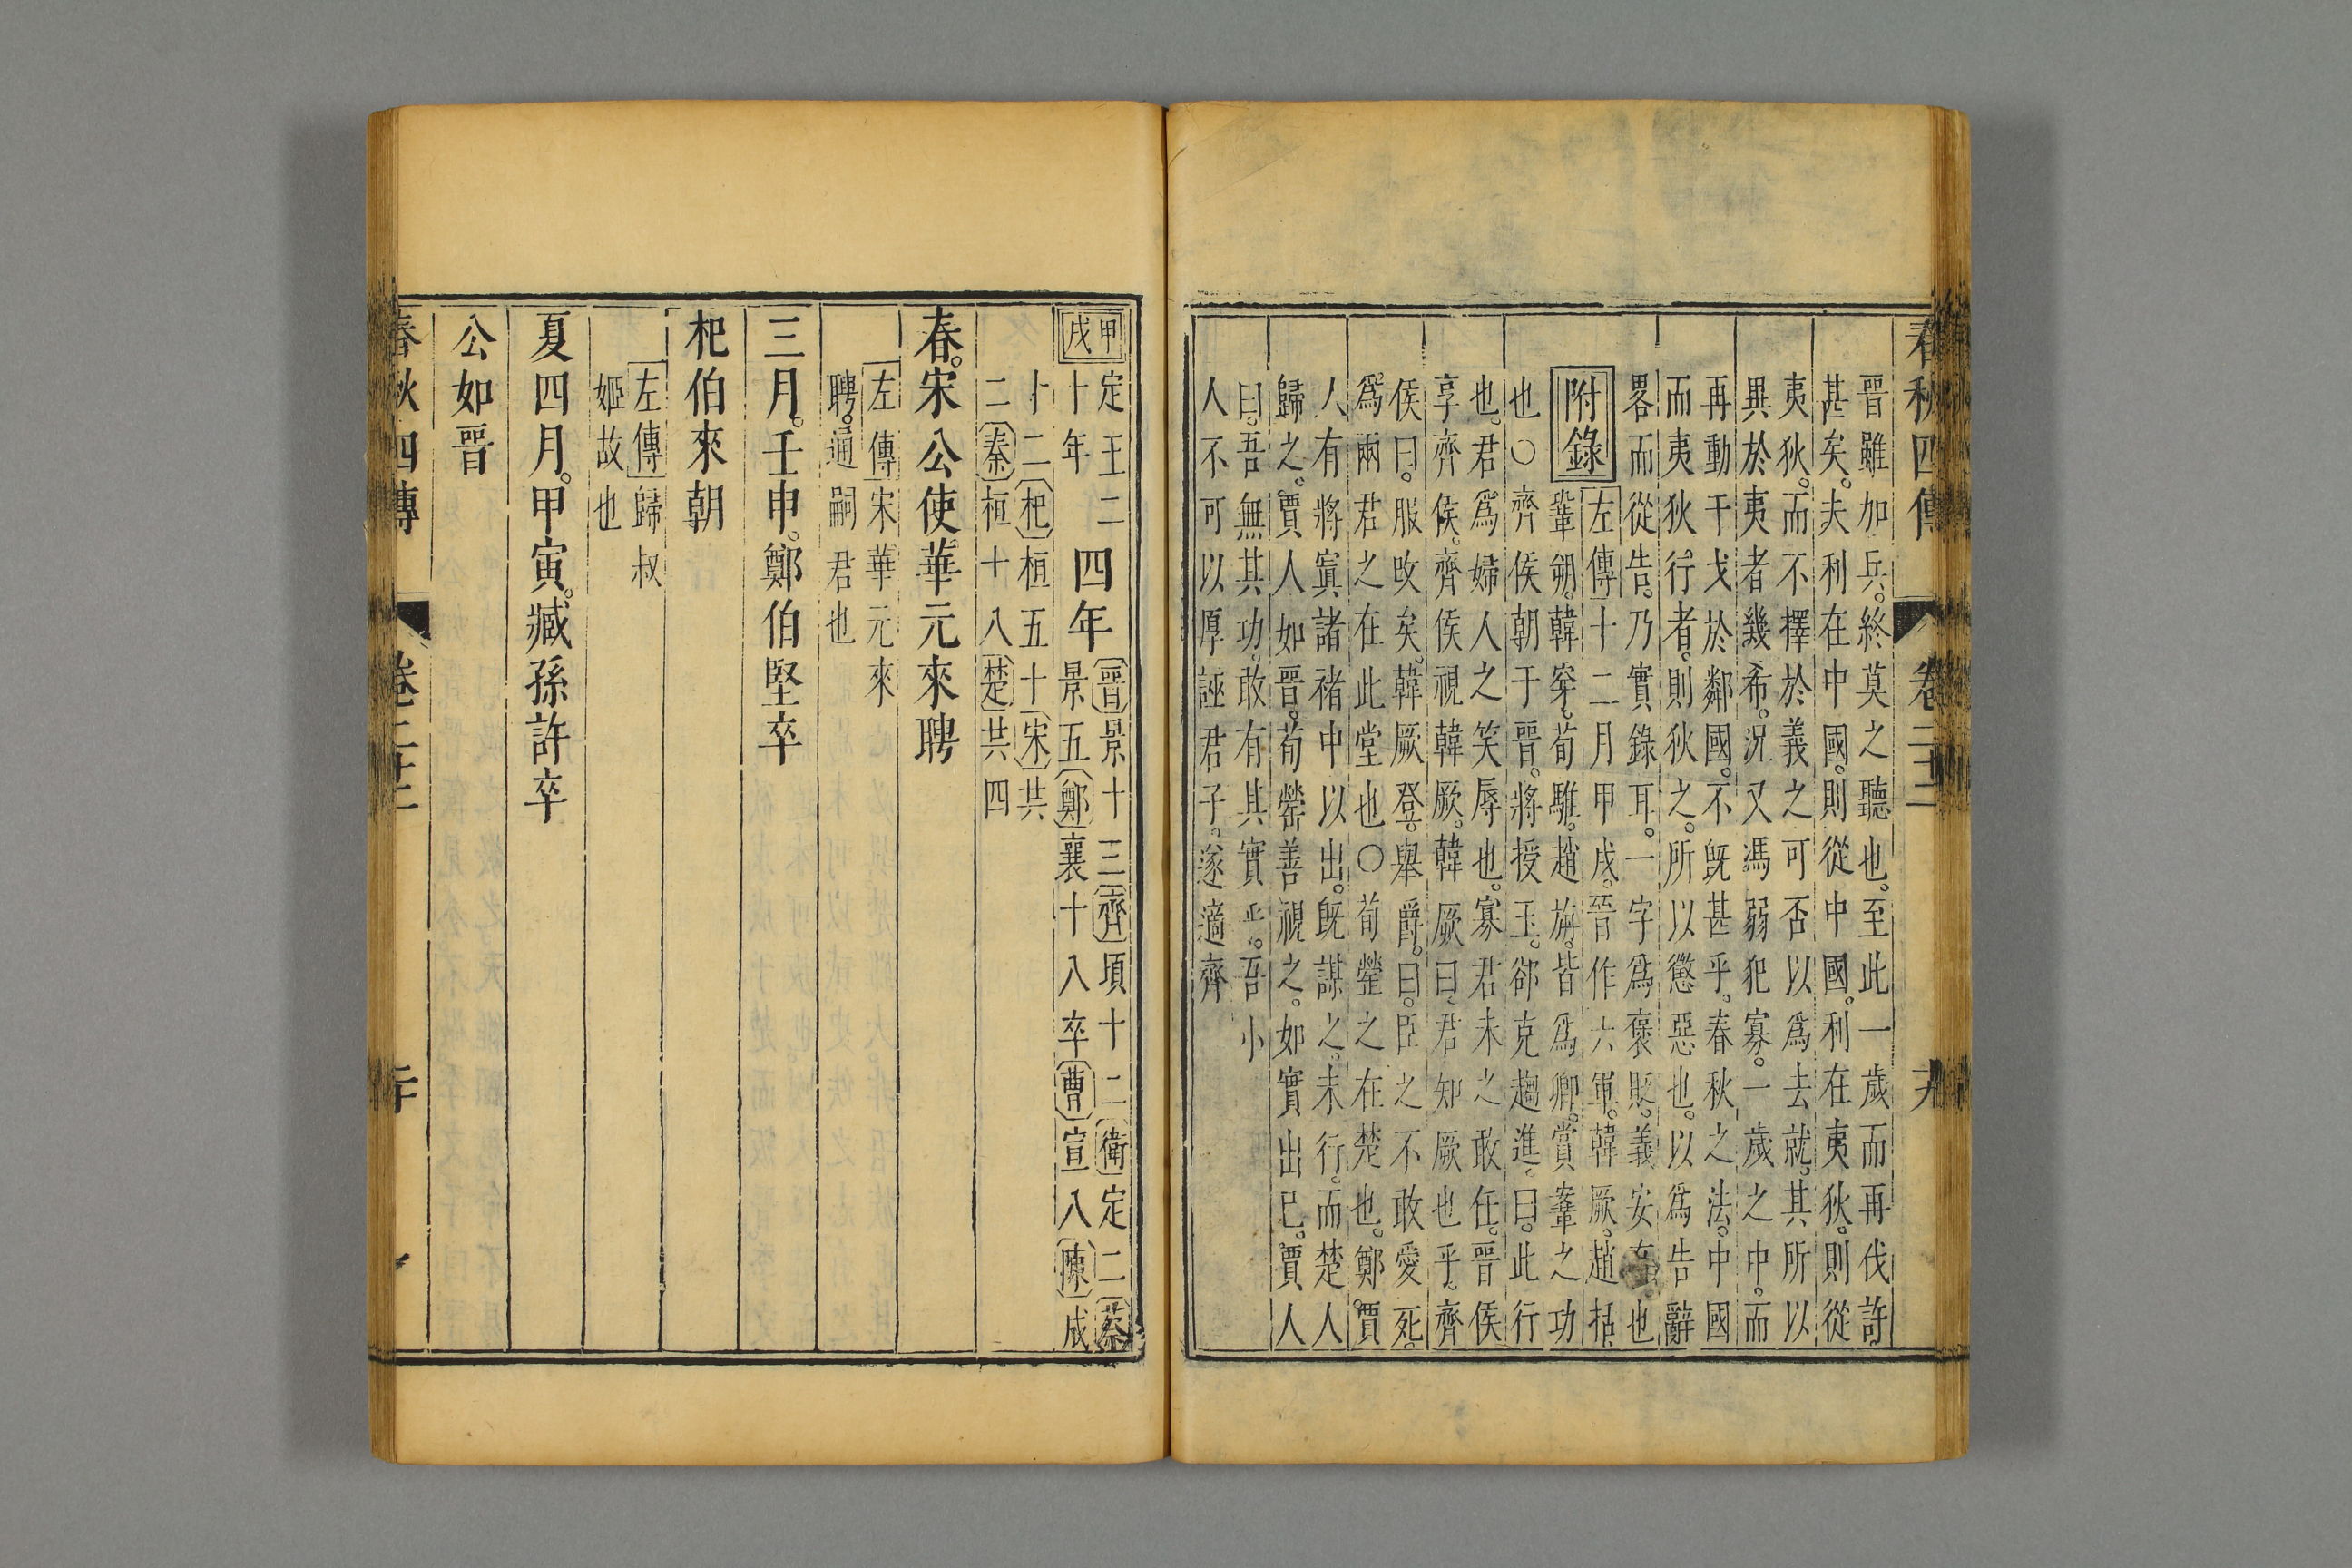 春秋四傳 卷二十二 十九
晉雖加兵。終莫之聽也。至此一歲而再伐許。
甚矣。夫利在中國。則從中國。利在夷狄。則從
夷狄。而不擇於義之可否以爲去就。其所以
異於夷者幾希。況又馮弱犯寡。一歲之中。而
再動干戈於鄰國。不旣甚乎。春秋之法。中國
而夷狄行者。則狄之。所以懲惡也。以爲告辭
畧而從告。乃實錄耳。一字爲褒貶。義安在也
附錄 左傳十二月甲戌。晉作六軍。韓厥。趙括。
鞏朔。韓穿。荀騅。趙旃。皆爲卿。賞鞌之功
也○齊侯朝于晉。將授玉。郤克趨進。曰。此行
也。君爲婦人之笑辱也。寡君未之敢任。晉侯
享齊侯。齊侯視韓厥。韓厥曰。君知厥也乎。齊
侯曰。服改矣。韓厥登。舉爵。曰。臣之不敢愛死。
爲兩君之在此堂也○荀罃之在楚也。鄭賈
人有將寘諸褚中以出。旣謀之。未行。而楚人
歸之。賈人如晉。荀罃善視之。如實出已。賈人
曰。吾無其功。敢有其實乎。吾小
人不可以厚誣君子。遂適齊
甲戌 定王二十年 四年 晉景十三齊頃十二衛定二蔡
景五鄭襄十八卒曹宣八陳成
十二杞桓五十宋共
二秦桓十八楚共四
春。宋公使華元來聘
左傳宋華元來
聘。通嗣君也
三月。壬申。鄭伯堅卒
杞伯來朝
左傳歸叔
姬故也
夏四月。甲寅。臧孫許卒
公如晉
春秋四傳 卷二十二 二十